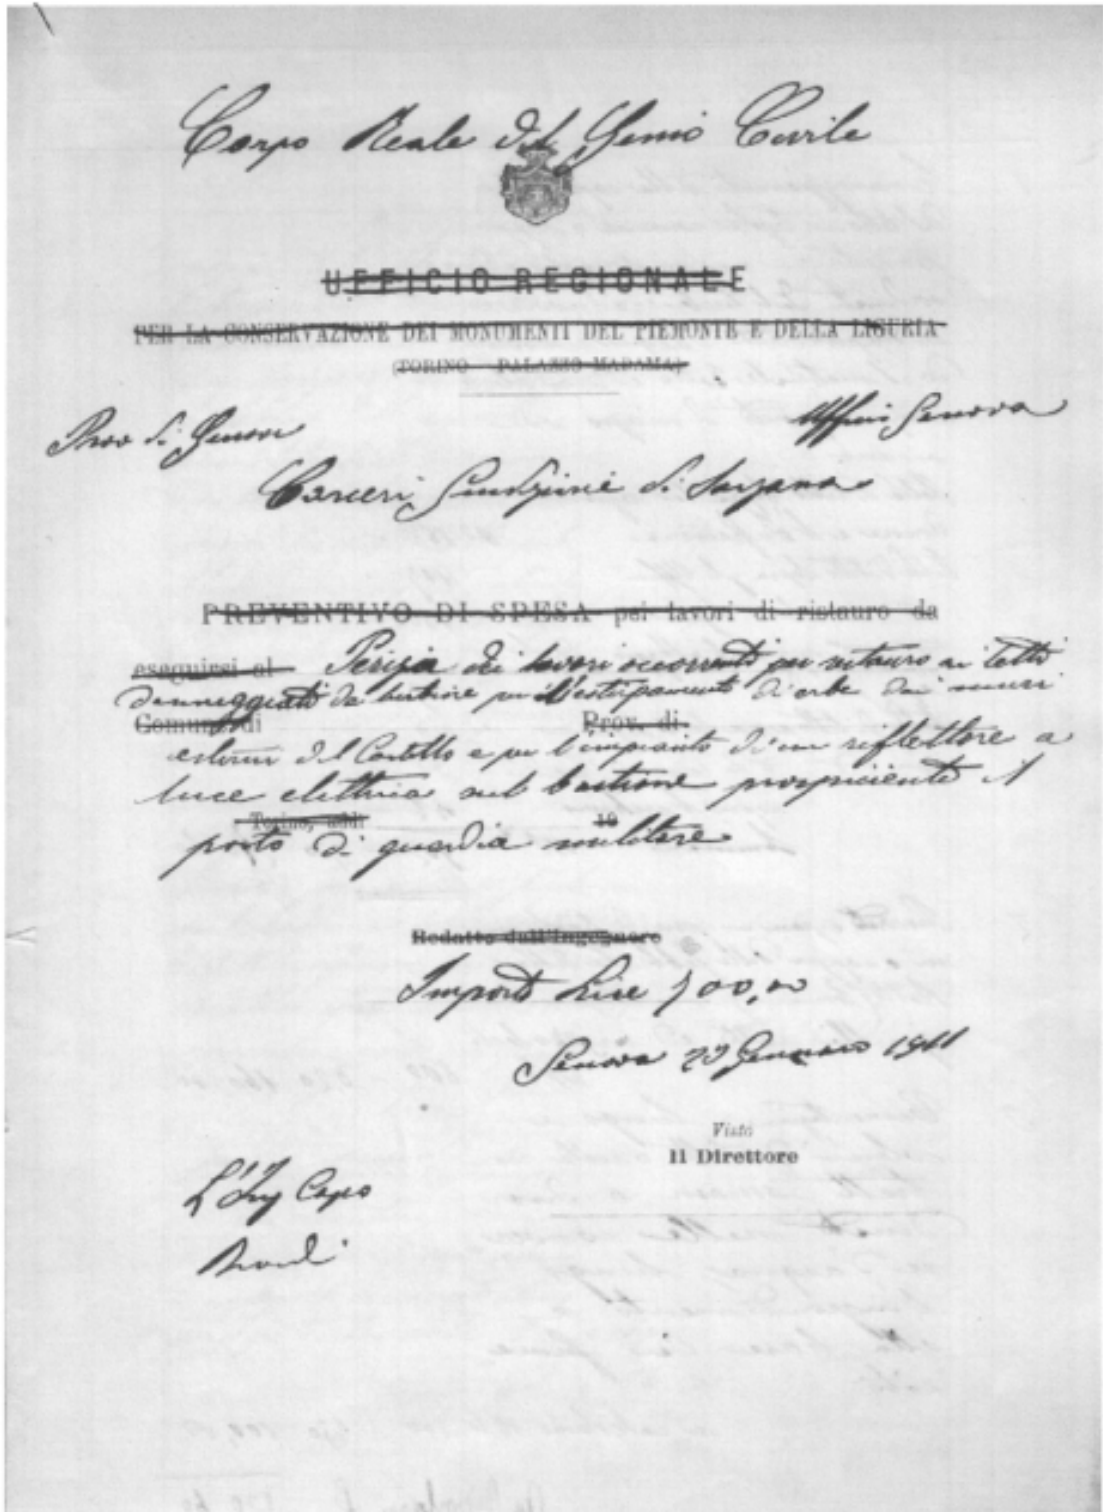 Corpo Reale del Genio Civile
UFFICIO REGIONALE
PER LA CONSERVAZIONE DEI MONUMENTI DEL PIEMONTE E DELLA LIGURIA
(TORINO - PALAZZO MADAMA)
Prov di Genova
Ufficio Genova
Carceri Giudiziarie di Sarzana
PREVENTIVO DI SPESA pei lavori di ristauro da
eseguirsi al Perizia dei lavori occorrenti per restauro ai tetti
danneggiati da bufere per l'estirpamento di erbe dai muri
Comune di Prov. di
esterni del Castello e per l'impianto di un riflettore a
luce elettrica sul bastione prospiciente il
Torino, addì 19
posto di guardia militare
Redatto dall'Ingegnere
Importo Lire 700,00
Genova 23 Gennaio 1911
Visto
Il Direttore
L'Ing Capo